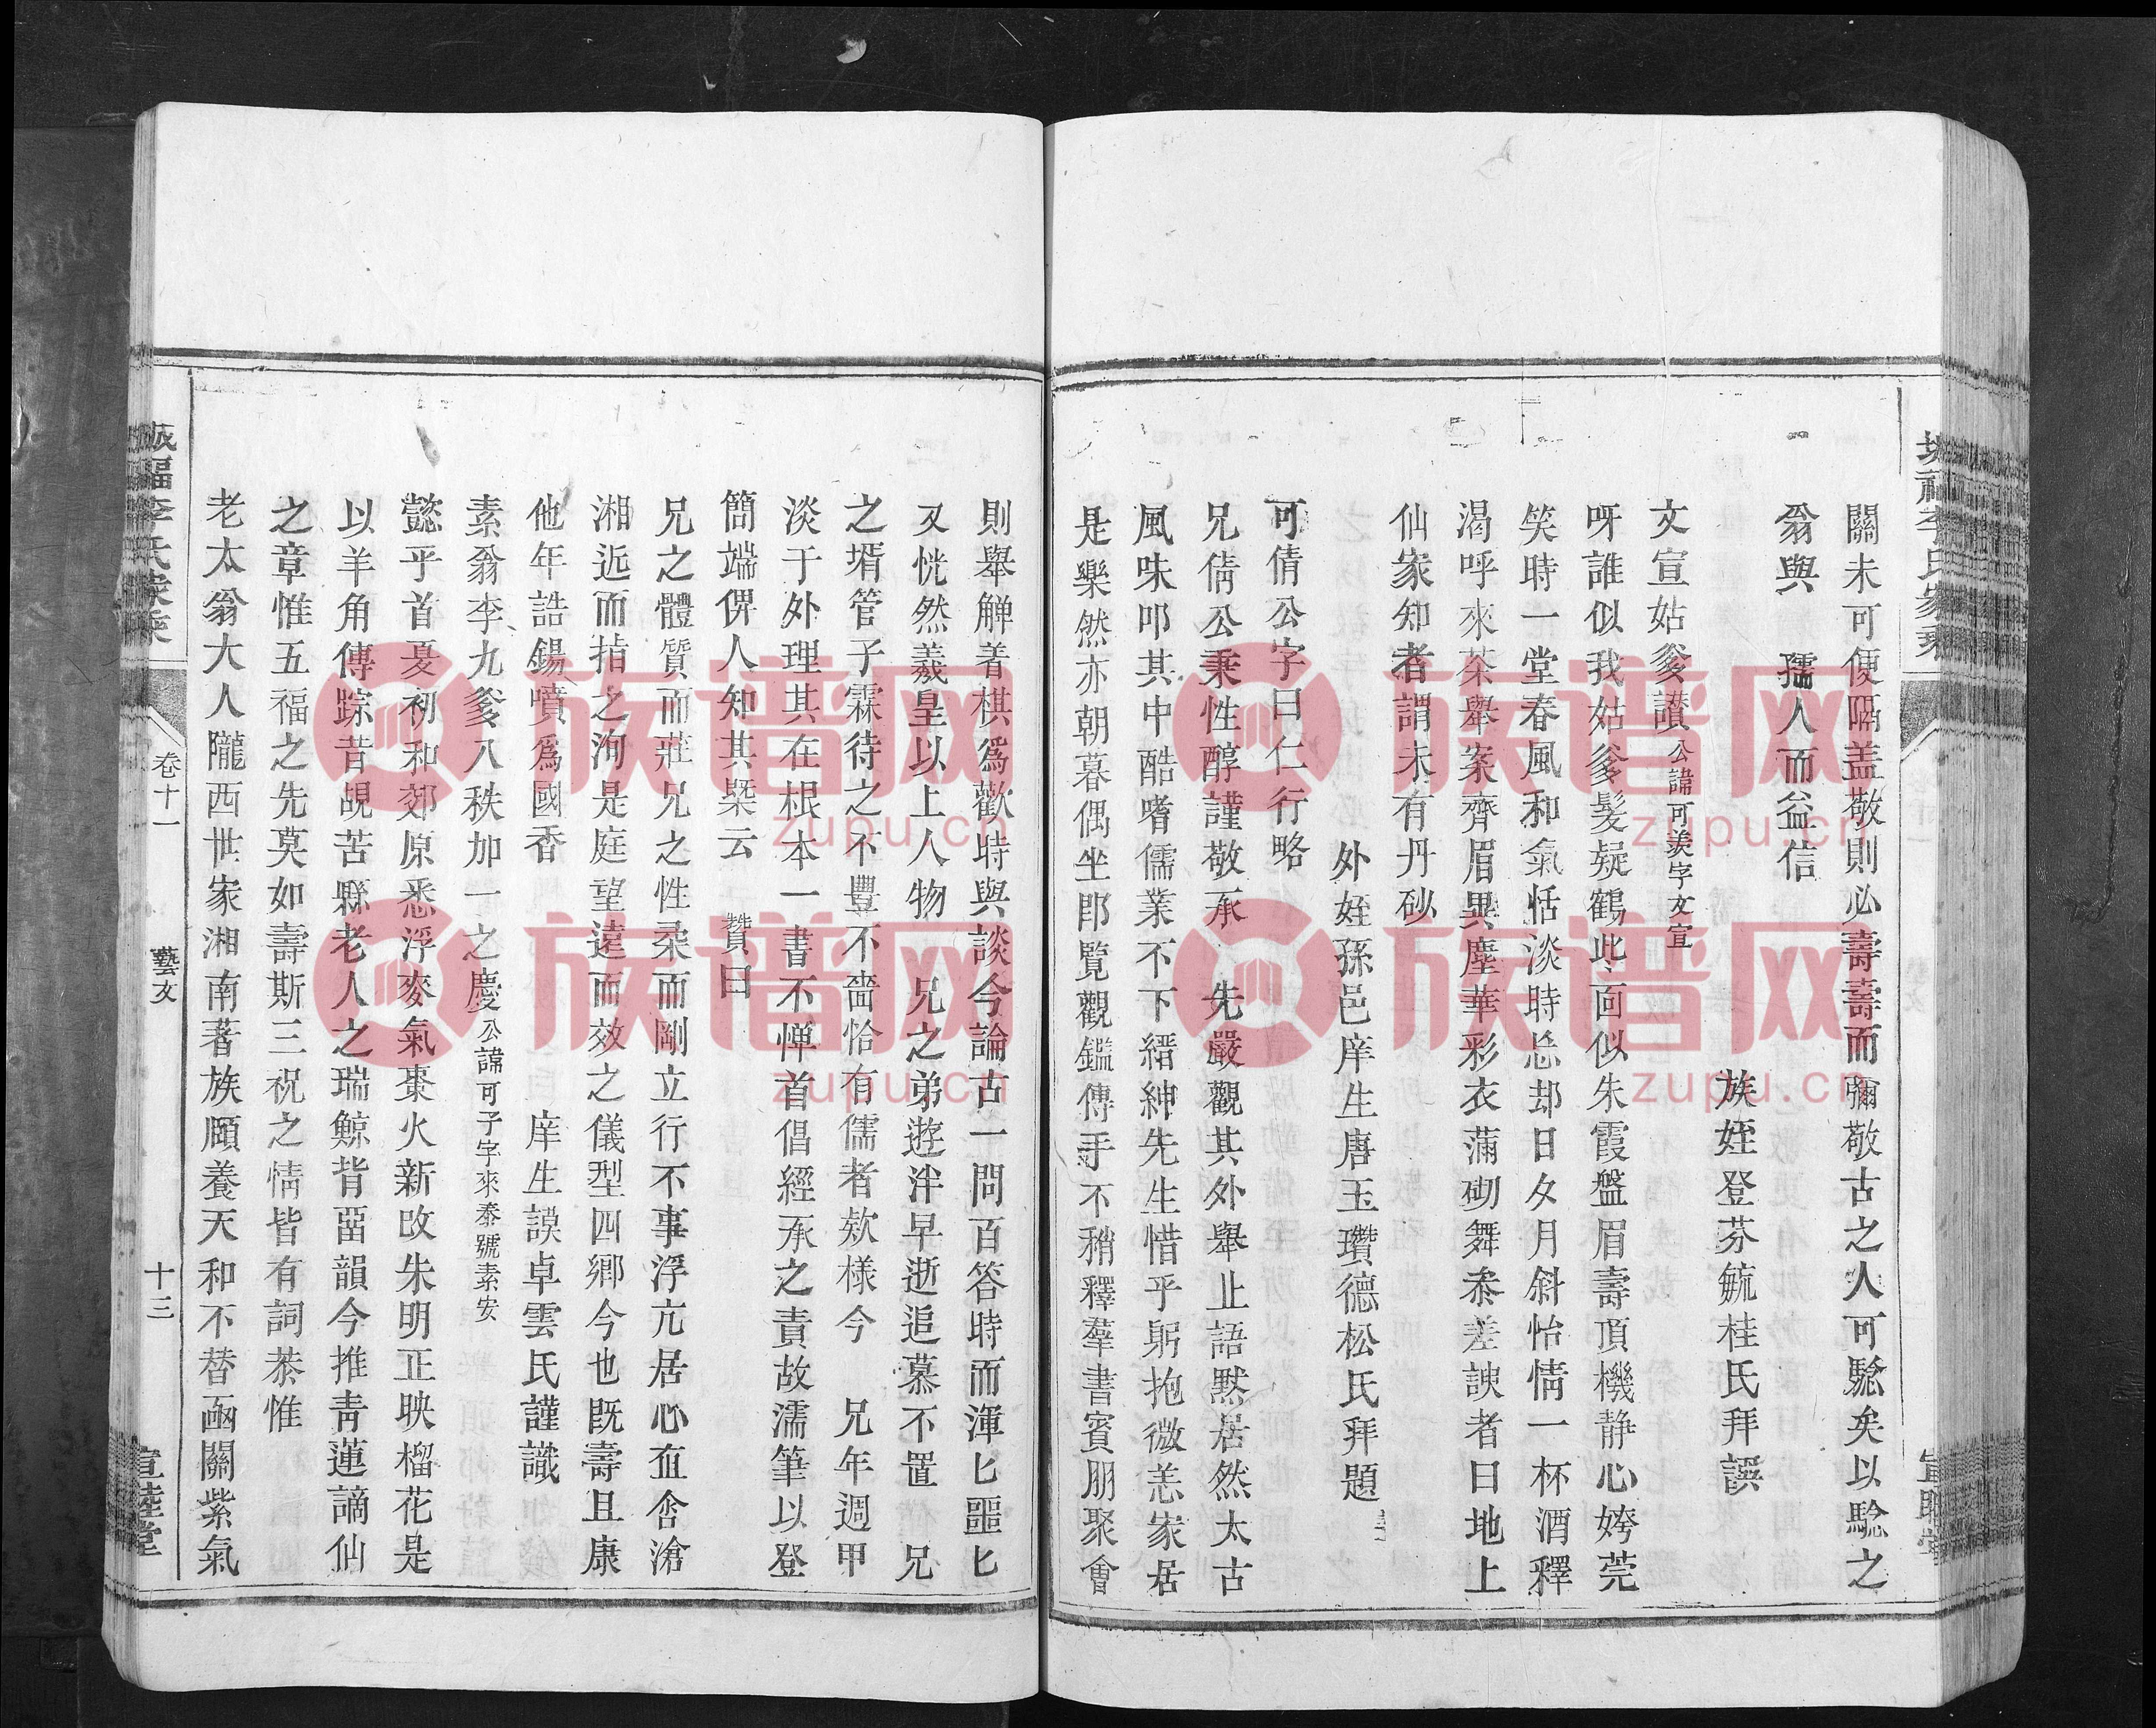 關未可便隔盖敬則必壽壽而彌敬古之人可騐矣以騐之
翁與　孺人而益信
族姪登芬毓桂氏拜譔
文宣姑爹讃公諱可羙字文宣
呀誰似我姑爹髮疑鶴此面似朱霞盤眉壽頂機静心姱莞
笑時一堂春風和氣恬淡時忘却日夕月斜怡情一杯酒釋
渴呼來茶舉案齊眉異塵華彩衣蒲砌舞叅差諛者曰地上
仙家知者謂未有丹砂
外姪孫邑庠生唐玉瓚德松氏拜題
可倩公字曰仁行略
兄倩公秉性醇謹敬承　先嚴觀其外舉止語默居然太古
風味叩其中酷嗜儒業不下縉紳先生惜乎躬抱微恙家居
是樂然亦朝暮偶坐郎覽觀鑑傳手不稍釋羣書賓朋聚會
則舉觶着棋爲歡時與談今論古一問百答時而渾匕噩匕
又恍然羲皇以上人物　兄之弟遊泮早逝追慕不置　兄
之壻管子霖待之不豐不嗇恰有儒者欵樣今　兄年週甲
淡于外理其在根本一書不憚首倡經承之責故濡筆以登
簡端俾人知其槩云　贊曰
兄之體質而莊兄之性柔而剛立行不事浮亢居心亙舍滄
湘近而㨖之洵是庭望遠而效之儀型四鄉今也既壽且康
他年誥錫噴爲國香　庠生謨卓雲氏謹識
素翁李九爹八秩加一之慶公諱可予字來泰號素安
懿乎首夏初和郊原悉浮麥氣棗火新改朱明正映榴花是
以羊角傳踪昔覘苦縣老人之瑞鯨背畱韻今推青蓮謫仙
之章惟五福之先莫如壽斯三祝之情皆有詞恭惟
老太翁大人隴西世家湘南著族頤養天和不替凾關紫氣
卷十一　藝文　十三